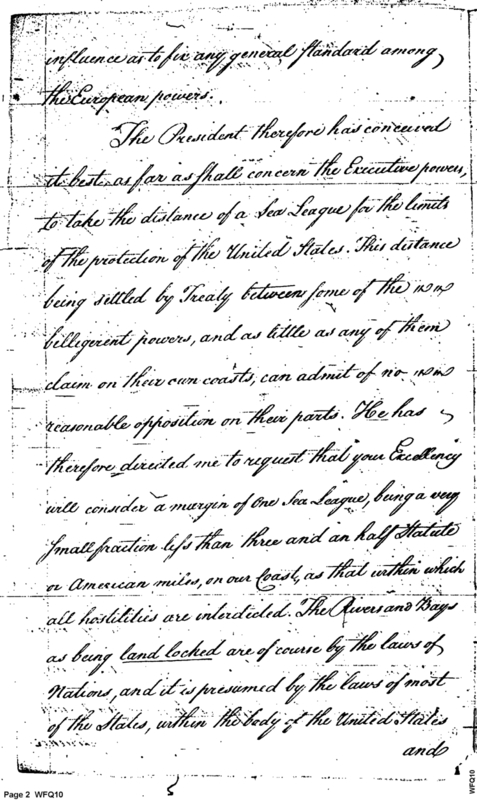 influence as to fix any general standard among
the European powers.
The President therefore has conceived
it best, as far as shall concern the Executive powers,
to take the distance of a Sea League for the limits
of the protection of the United States. This distance
being settled by Treaty between some of the
belligerent powers, and as little as any of them
claim on their own coasts, can admit of no
reasonable opposition on their parts. He has
therefore directed me to request that your Excellency
will consider a margin of One Sea League, being a very
small fraction less than three and an half Statute
or American miles, on our Coast, as that within which
all hostilities are interdicted. The Rivers and Bays
as being land locked are of course by the laws of
Nations, and it is presumed by the laws of most
of the States, within the body of the United States
and
Page 2 WFQ10
WFQ10